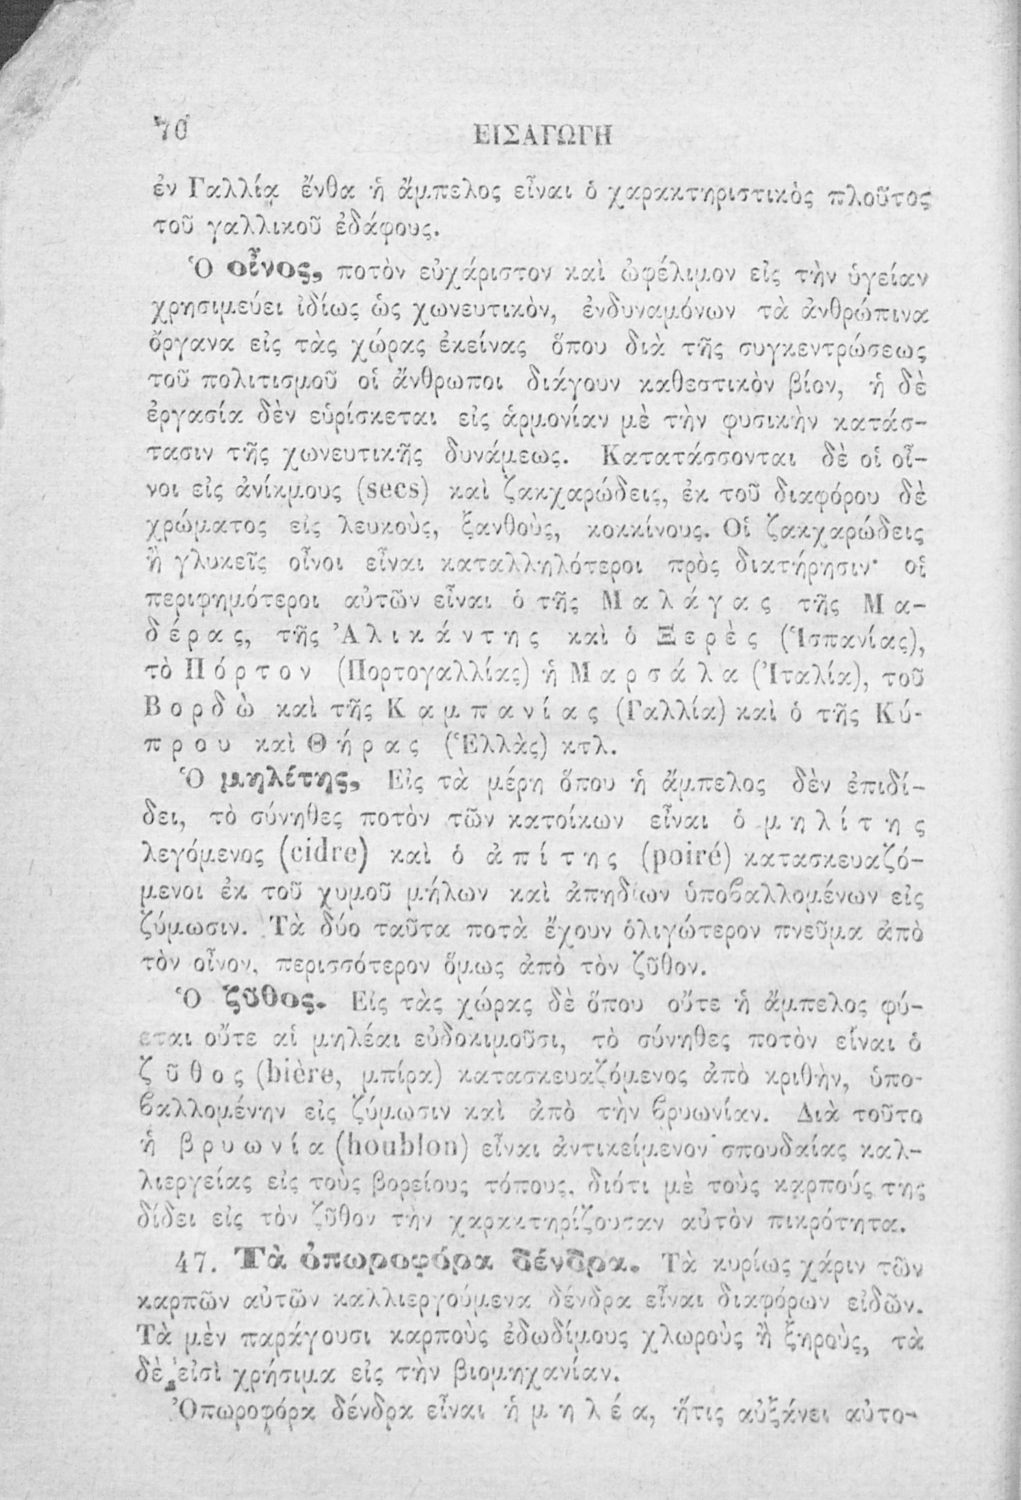 70 ΕΙΣΑΓΩΓΗ
ἐν Γαλλίᾳ ἔνθα ἡ ἄμπελος εἶναι ὁ χαρακτηριστικὸς πλοῦτος
τοῦ γαλλικοῦ ἐδάφους.
Ὁ οἶνος, ποτὸν εὐχάριστον καὶ ὠφέλιμον εἰς τὴν ὑγείαν
χρησιμεύει ἰδίως ὡς χωνευτικὸν, ἐνδυναμόνων τὰ ἀνθρώπινα
ὄργανα εἰς τὰς χώρας ἐκείνας ὅπου διὰ τῆς συγκεντρώσεως
τοῦ πολιτισμοῦ οἱ ἄνθρωποι διάγουν καθεστικὸν βίον, ἡ δὲ
ἐργασία δὲν εὑρίσκεται εἰς ἁρμονίαν μὲ τὴν φυσικὴν κατάσ-
τασιν τῆς χωνευτικῆς δυνάμεως. Κατατάσσονται δὲ οἱ οἶ-
νοι εἰς ἀνίκμους (secs) καὶ ζακχαρώδεις, ἐκ τοῦ διαφόρου δὲ
χρώματος εἰς λευκοὺς, ξανθοὺς, κοκκίνους. Οἱ ζακχαρώδεις
ἢ γλυκεῖς οἶνοι εἶναι καταλληλότεροι πρὸς διατήρησιν· οἱ
περιφημότεροι αὐτῶν εἶναι ὁ τῆς Μαλάγας τῆς Μα-
δέρας, τῆς Ἀλικάντης καὶ ὁ Ξερὲς (Ἱσπανίας),
τὸ Πόρτον (Πορτογαλλίας) ἡ Μαρσάλα (Ἰταλία), τοῦ
Βορδὼ καὶ τῆς Καμπανίας (Γαλλία) καὶ ὁ τῆς Κύ-
πρου καὶ Θήρας (Ἑλλὰς) κτλ.
Ὁ μηλίτης, Εἰς τὰ μέρη ὅπου ἡ ἄμπελος δὲν ἐπιδί-
δει, τὸ σύνηθες ποτὸν τῶν κατοίκων εἶναι ὁ μηλίτης
λεγόμενος (cidre) καὶ ὁ ἀπίτης (poiré) κατασκευαζό-
μενοι ἐκ τοῦ χυμοῦ μήλων καὶ ἀπηδίων ὑποβαλλομένων εἰς
ζύμωσιν. Τὰ δύο ταῦτα ποτὰ ἔχουν ὀλιγώτερον πνεῦμα ἀπὸ
τὸν οἶνον, περισσότερον ὅμως ἀπὸ τὸν ζῦθον.
Ὁ ζῦθος. Εἰς τὰς χώρας δὲ ὅπου οὔτε ἡ ἄμπελος φύ-
εται οὔτε αἱ μηλέαι εὐδοκιμοῦσι, τὸ σύνηθες ποτὸν εἶναι ὁ
ζῦθος (bière, μπίρα) κατασκευαζόμενος ἀπὸ κριθὴν, ὑπο-
βαλλομένην εἰς ζύμωσιν καὶ ἀπὸ τὴν βρυωνίαν. Διὰ τοῦτο
ἡ βρυωνία (houblon) εἶναι ἀντικείμενον σπουδαίας καλ-
λιεργείας εἰς τοὺς βορείους τόπους, διότι μὲ τοὺς καρπούς της
δίδει εἰς τὸν ζῦθον τὴν χαρακτηρίζουσαν αὐτὸν πικρότητα.
47. Τὰ ὀπωροφόρα δένδρα. Τὰ κυρίως χάριν τῶν
καρπῶν αὐτῶν καλλιεργούμενα δένδρα εἶναι διαφόρων εἰδῶν.
Τὰ μὲν παράγουσι καρποὺς ἐδωδίμους χλωροὺς ἢ ξηροὺς, τὰ
δὲ εἰσὶ χρήσιμα εἰς τὴν βιομηχανίαν.
Ὀπωροφόρα δένδρα εἶναι ἡ μηλέα, ἥτις αὐξάνει αὐτο-